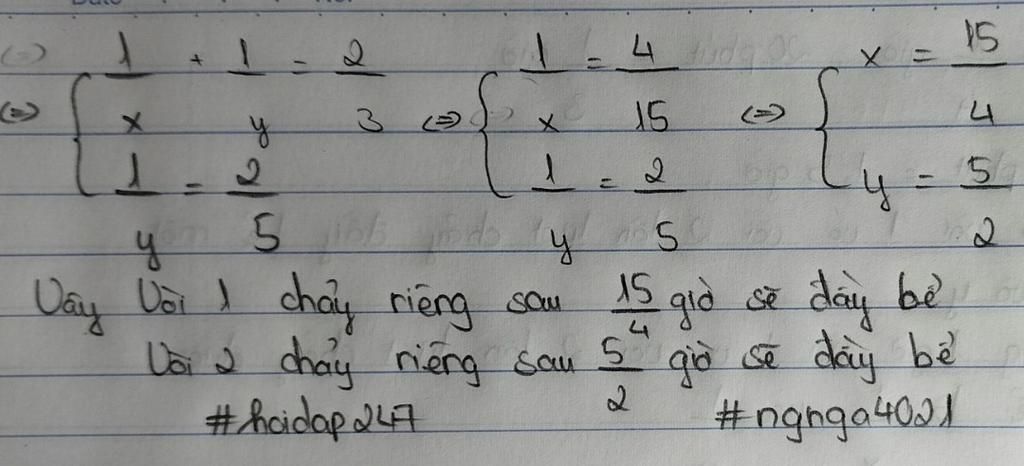 (=) 1/x + 1/y = 2/3 (=) 1/x = 4/15 (=) x = 15/4
1/y = 2/5 1/y = 2/5 y = 5/2
Vậy Vòi 1 chảy riêng sau 15/4 giờ sẽ đầy bể
Vòi 2 chảy riêng sau 5/2 giờ sẽ đầy bể
#hoidap247 #ngnga4021